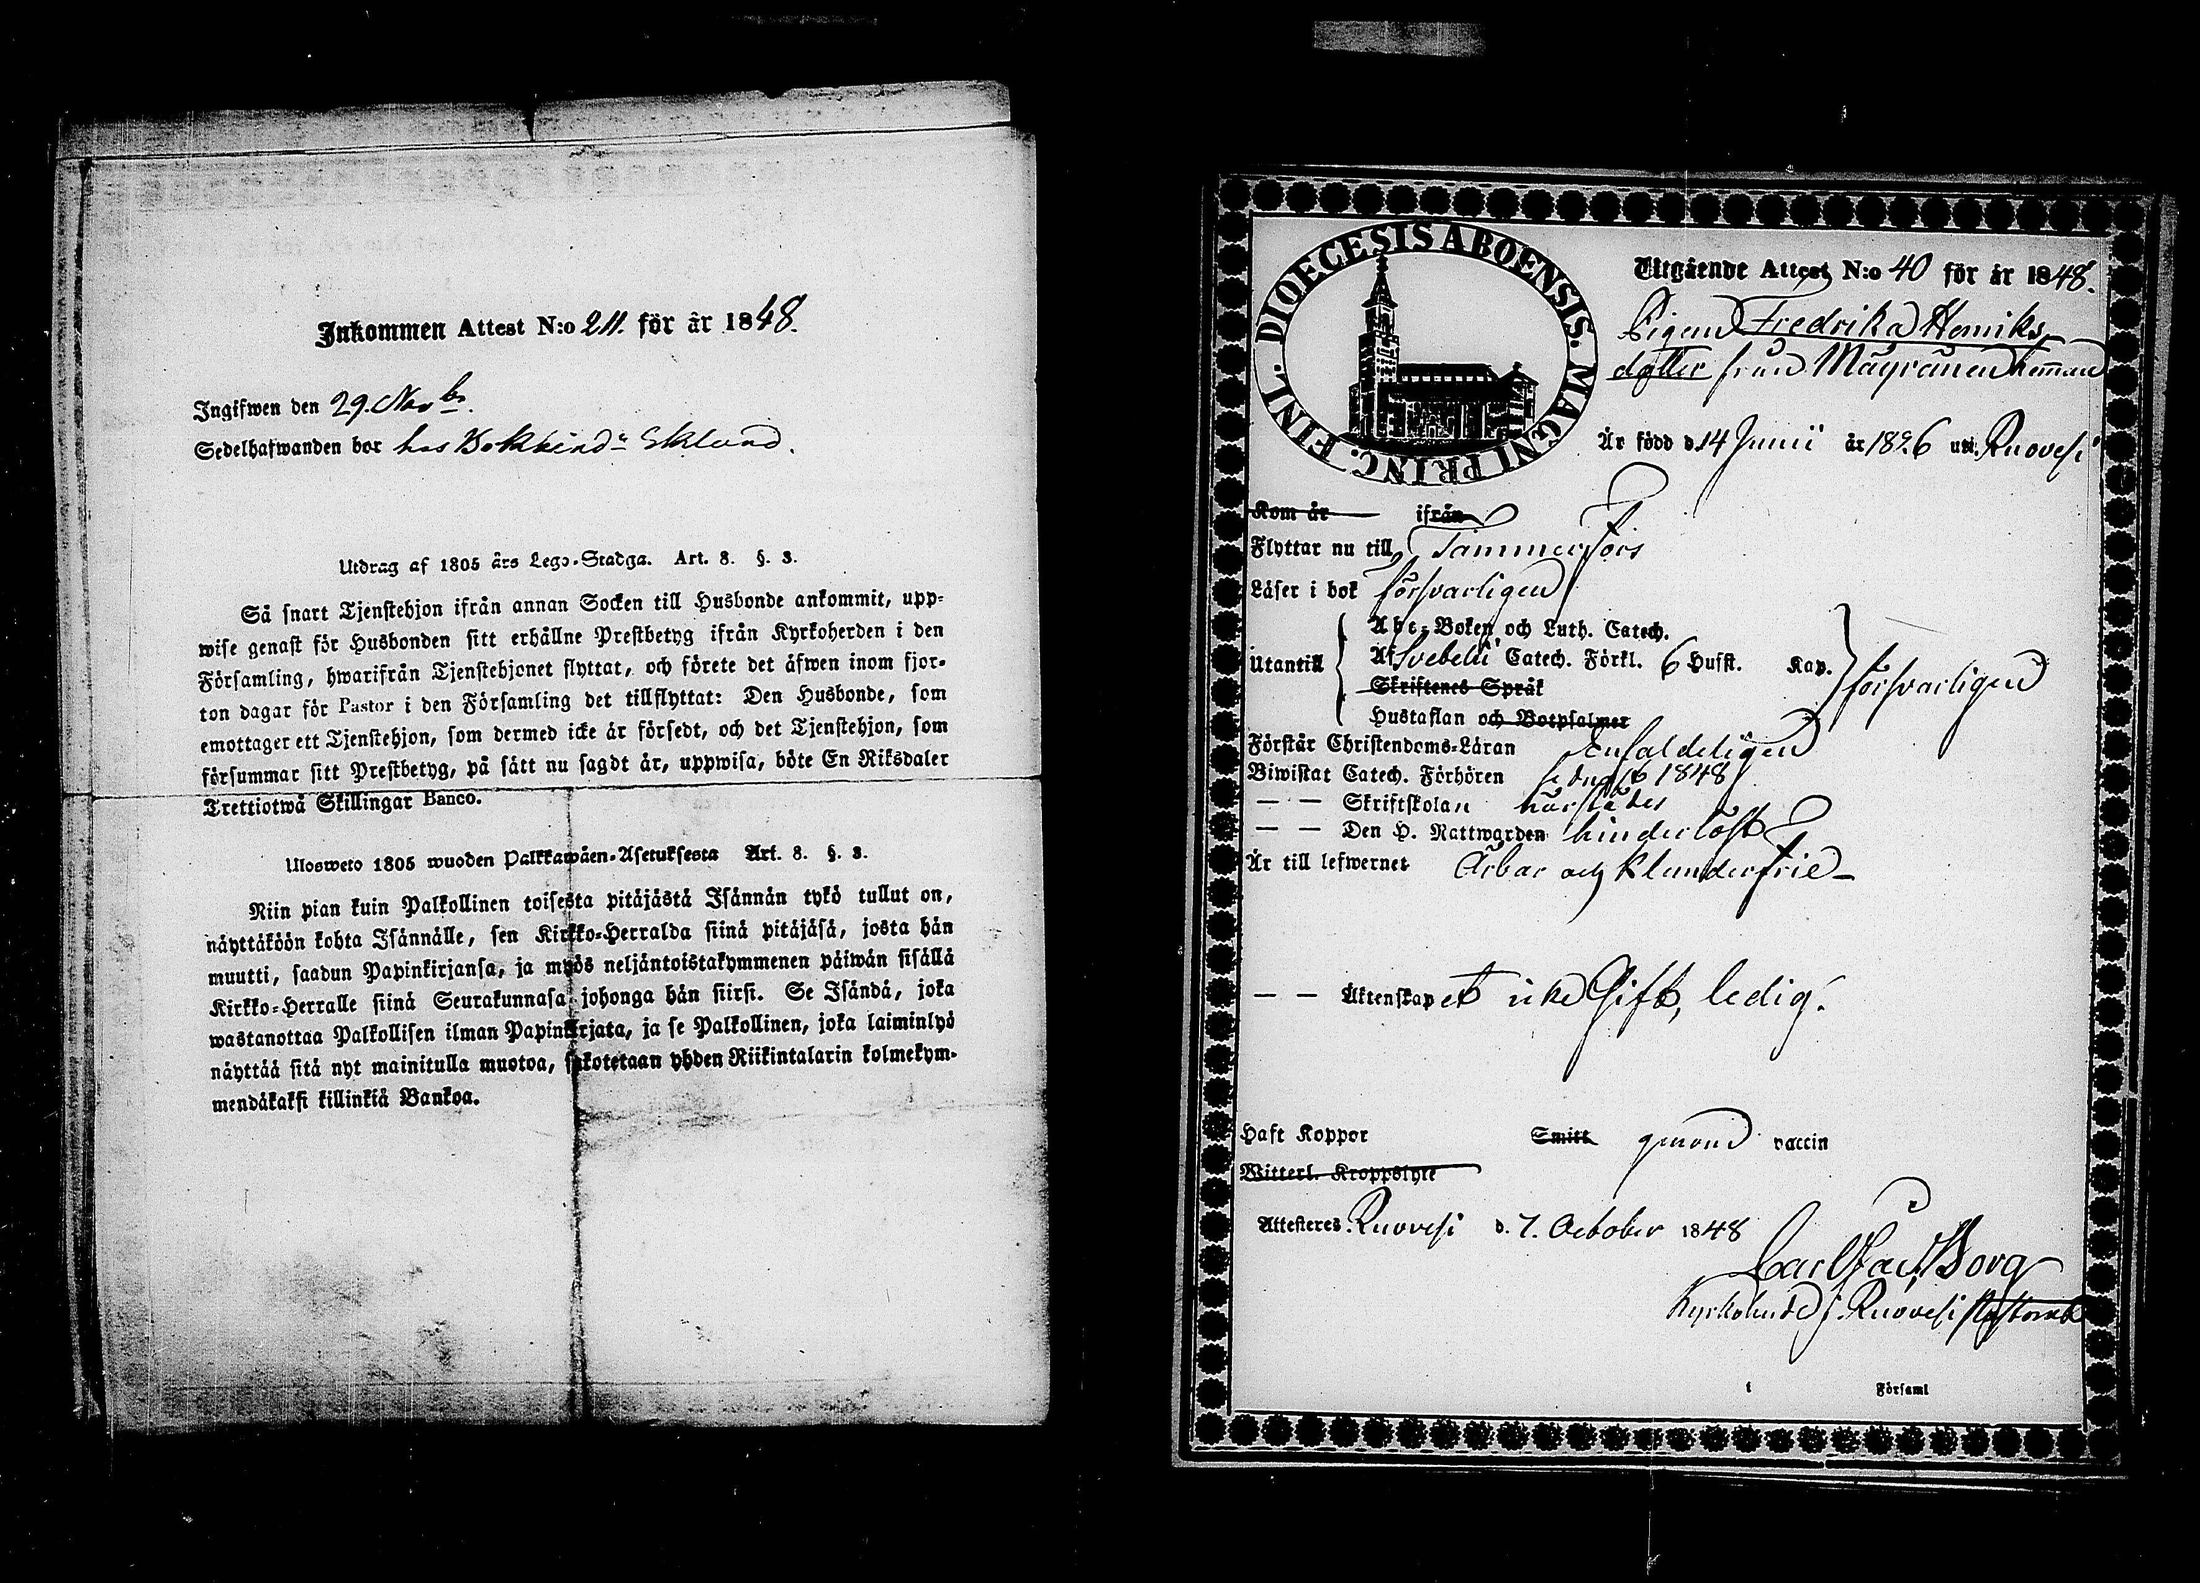 Inkommen Attest N:o 211. för år 1848.
Ingifwen den 29. Novbr.
Sedelhafwanden bor hos Bokbind. Eklund.
Utdrag af 1805 års Lego-Stadga. Art. 8. §. 3.
Så snart Tjenstehjon ifrån annan Socken till Husbonde ankommit, upp-
wise genast för Husbonden sitt erhållne Prestbetyg ifrån Kyrkoherden i den
Församling, hwarifrån Tjenstehjonet flyttat, och förete det äfwen inom fjor-
ton dagar för Pastor i den Församling det tillflyttat: Den Husbonde, som
emottager ett Tjenstehjon, som dermed icke är försedt, och det Tjenstehjon, som
försummar sitt Prestbetyg, på sätt nu sagdt är, uppwisa, böte En Riksdaler
Trettiotwå Skillingar Banco.
Ulosweto 1805 wuoden Palkkawäen-Asetuksesta Art. 8. §. 3.
Niin pian kuin Palkollinen toisesta pitäjästä Isännän tykö tullut on,
näyttäköön kohta Isännälle, sen Kirkko-Herralda siinä pitäjäsä, josta hän
muutti, saadun Papinkirjansa, ja myös neljäntoistakymmenen päiwän sisällä
Kirkko-Herralle siinä Seurakunnasa johonga hän siirsi. Se Isändä, joka
wastanottaa Palkollisen ilman Papinkirjata, ja se Palkollinen, joka laiminlyö
näyttää sitä nyt mainitulla muotoa, sakotetaan yhden Riikintalarin kolmekym-
mendäkaksi killinkiä Bankoa.
DIOECESIS ABOENSIS. MAGNI PRINC. FINL.
Utgående Attest N:o 40 för år 1848.
Pigan Fredrika Henriks
dotter från Mäyränen hemman
Är född d. 14 Junii år 1826 uti Ruovesi
Kom år ifrån
Flyttar nu till Tammerfors
Läser i bok försvarligen
Utantill
Abc-Boken och Luth. Catech.
Af Svebelii Catech. Förkl. 6 Husst. Kap.
Skriftenes Språk
Hustaflan och Botpsalmer
försvarligen
Förstår Christendoms-Läran Enfaldeligen
Biwistat Catech. Förhören 1848
— — Skriftskolan härstädes
— — Den H. Nattwarden hinderlöst
Är till lefwernet Ärbar och klanderfrie
— — Äktenskapet icke Gift, ledig.
Haft Koppor Smitt genom vaccin
Witterl. Kroppslyte
Attesteres Ruovesi d. 7. October 1848
Carl Borg
Kyrkoherde i Ruovesi Pastorat
i Församl